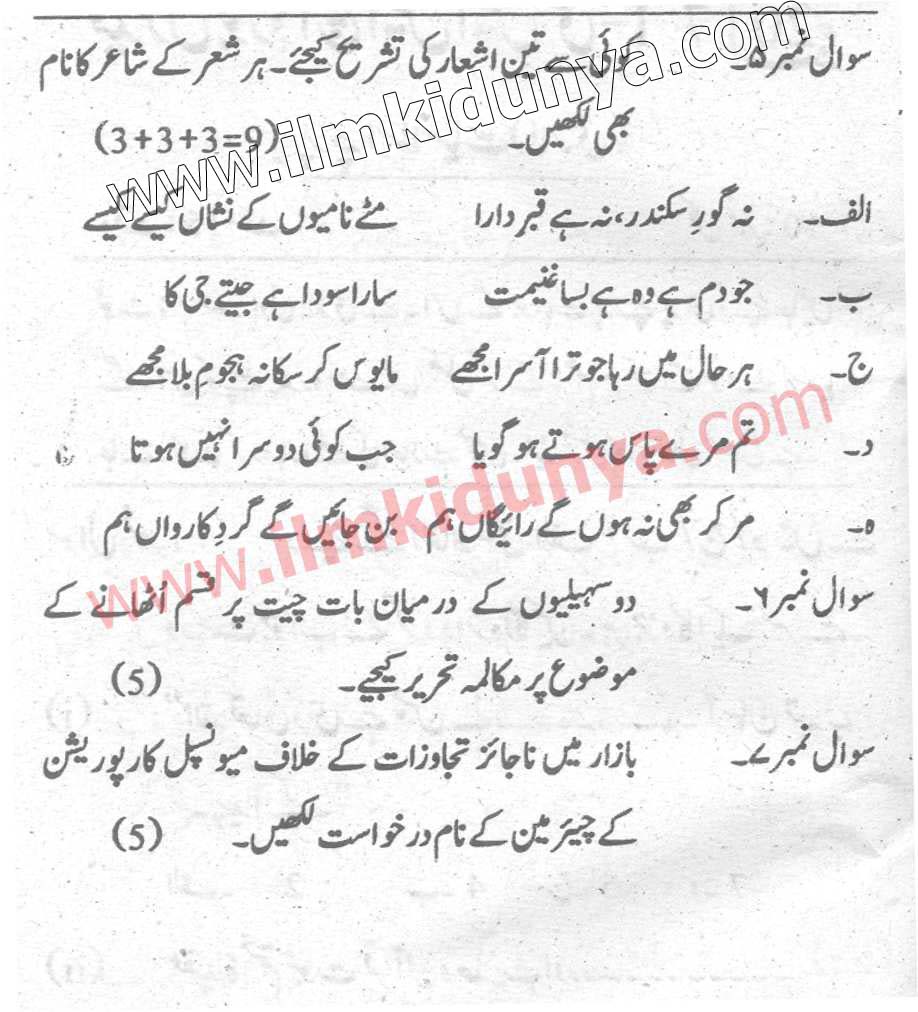 سوال نمبر ۵۔ کوئی سے تین اشعار کی تشریح کیجئے۔ ہر شعر کے شاعر کا نام
بھی لکھیں۔ (3+3+3=9)
www.ilmkidunya.com
الف۔ نہ گورِ سکندر، نہ ہے قبر دارا مٹے نامیوں کے نشاں کیسے کیسے
ب۔ جو دم ہے وہ ہے بسا غنیمت سارا سودا ہے جیتے جی کا
ج۔ ہر حال میں رہا جو ترا آسرا مجھے مایوس کر سکا نہ ہجومِ بلا مجھے
د۔ تم مرے پاس ہوتے ہو گویا جب کوئی دوسرا نہیں ہوتا
www.ilmkidunya.com
ہ۔ مر کر بھی نہ ہوں گے رائیگاں ہم بن جائیں گے گردِ کارواں ہم
سوال نمبر ۶۔ دو سہیلیوں کے درمیان بات چیت پر قسم اُٹھانے کے
موضوع پر مکالمہ تحریر کیجیے۔ (5)
سوال نمبر ۷۔ بازار میں ناجائز تجاوزات کے خلاف میونسپل کارپوریشن
کے چیئرمین کے نام درخواست لکھیں۔ (5)